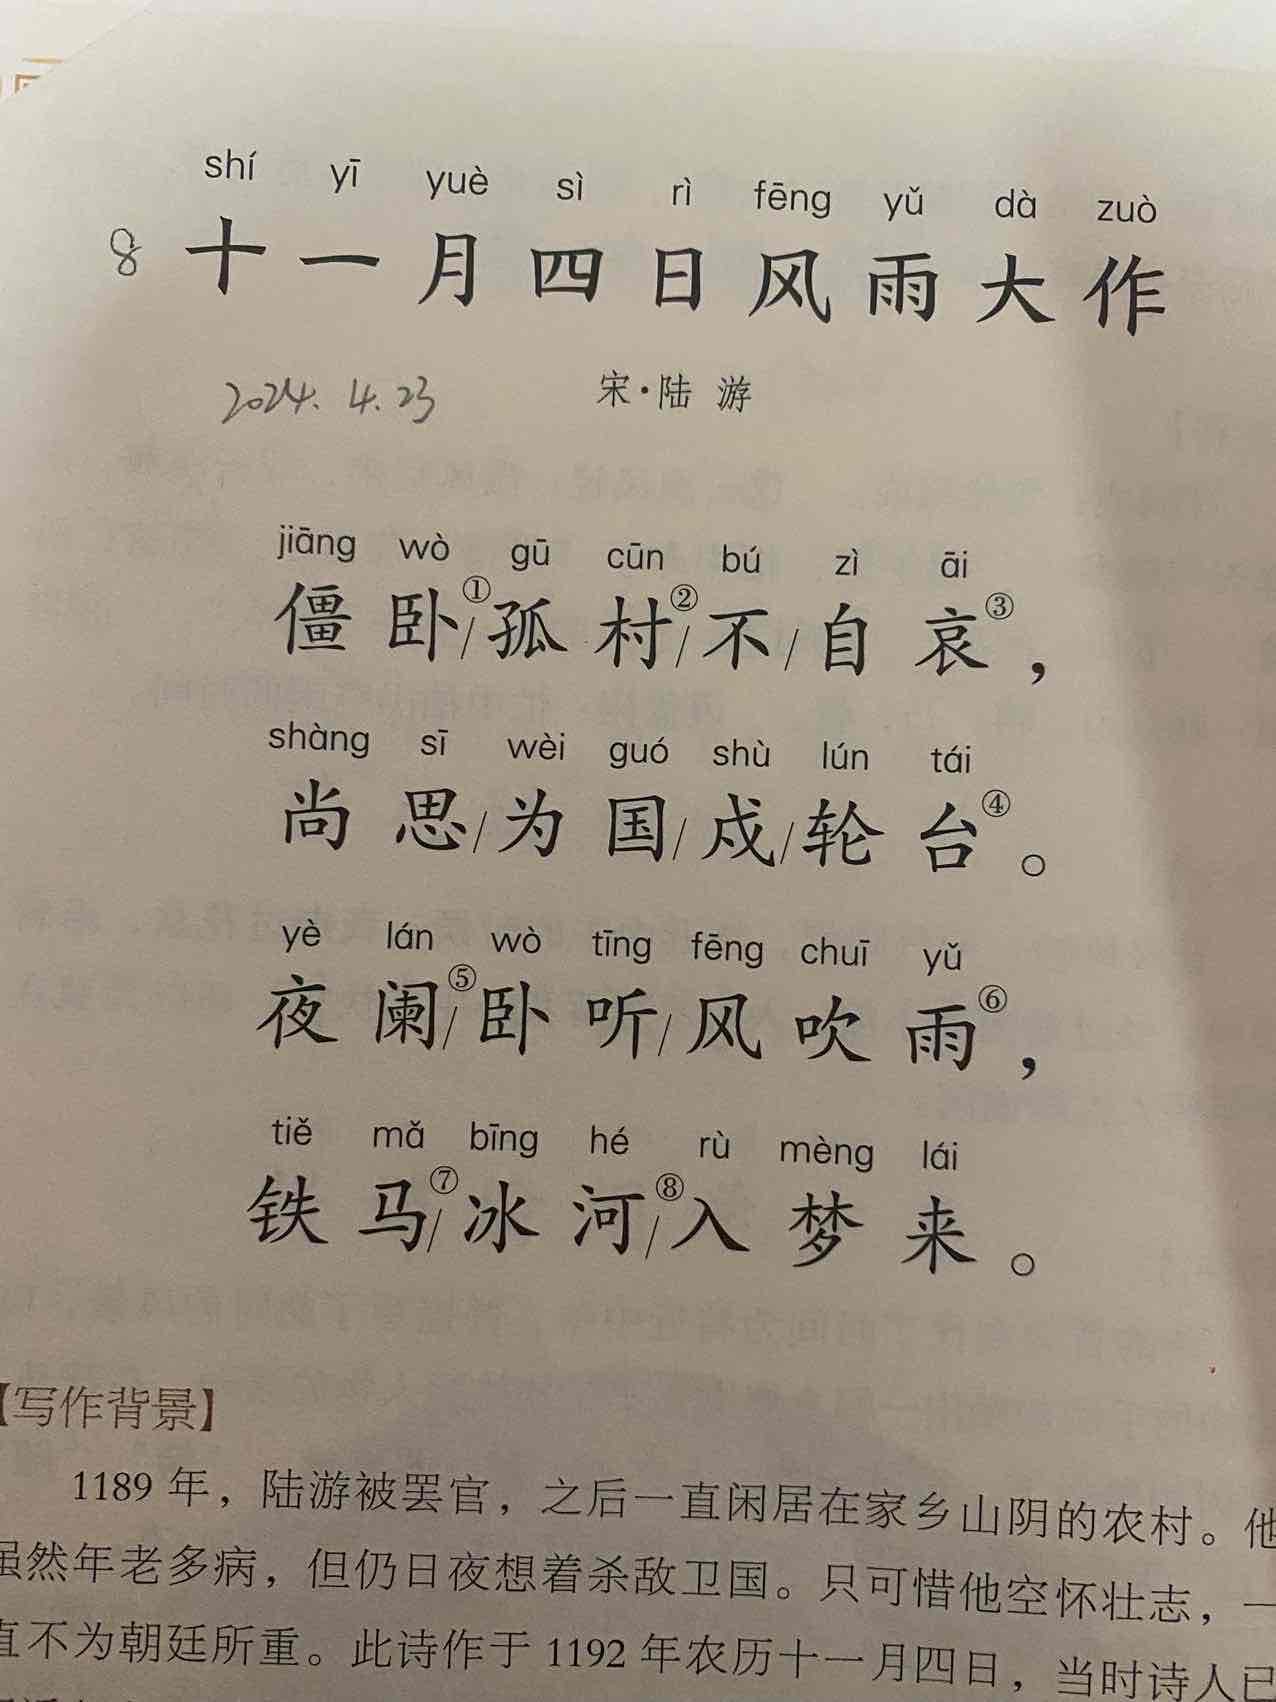 shí yī yuè sì rì fēng yǔ dà zuò
8 十一月四日风雨大作
2024.4.23 宋·陆 游
jiāng wò gū cūn bú zì āi
僵卧①/孤村②/不/自哀③，
shàng sī wèi guó shù lún tái
尚思/为国/戍/轮台④。
yè lán wò tīng fēng chuī yǔ
夜阑⑤/卧听/风吹雨⑥，
tiě mǎ bīng hé rù mèng lái
铁马⑦/冰河⑧/入梦来。
【写作背景】
1189年，陆游被罢官，之后一直闲居在家乡山阴的农村。他
虽然年老多病，但仍日夜想着杀敌卫国。只可惜他空怀壮志，一
直不为朝廷所重。此诗作于1192年农历十一月四日，当时诗人已